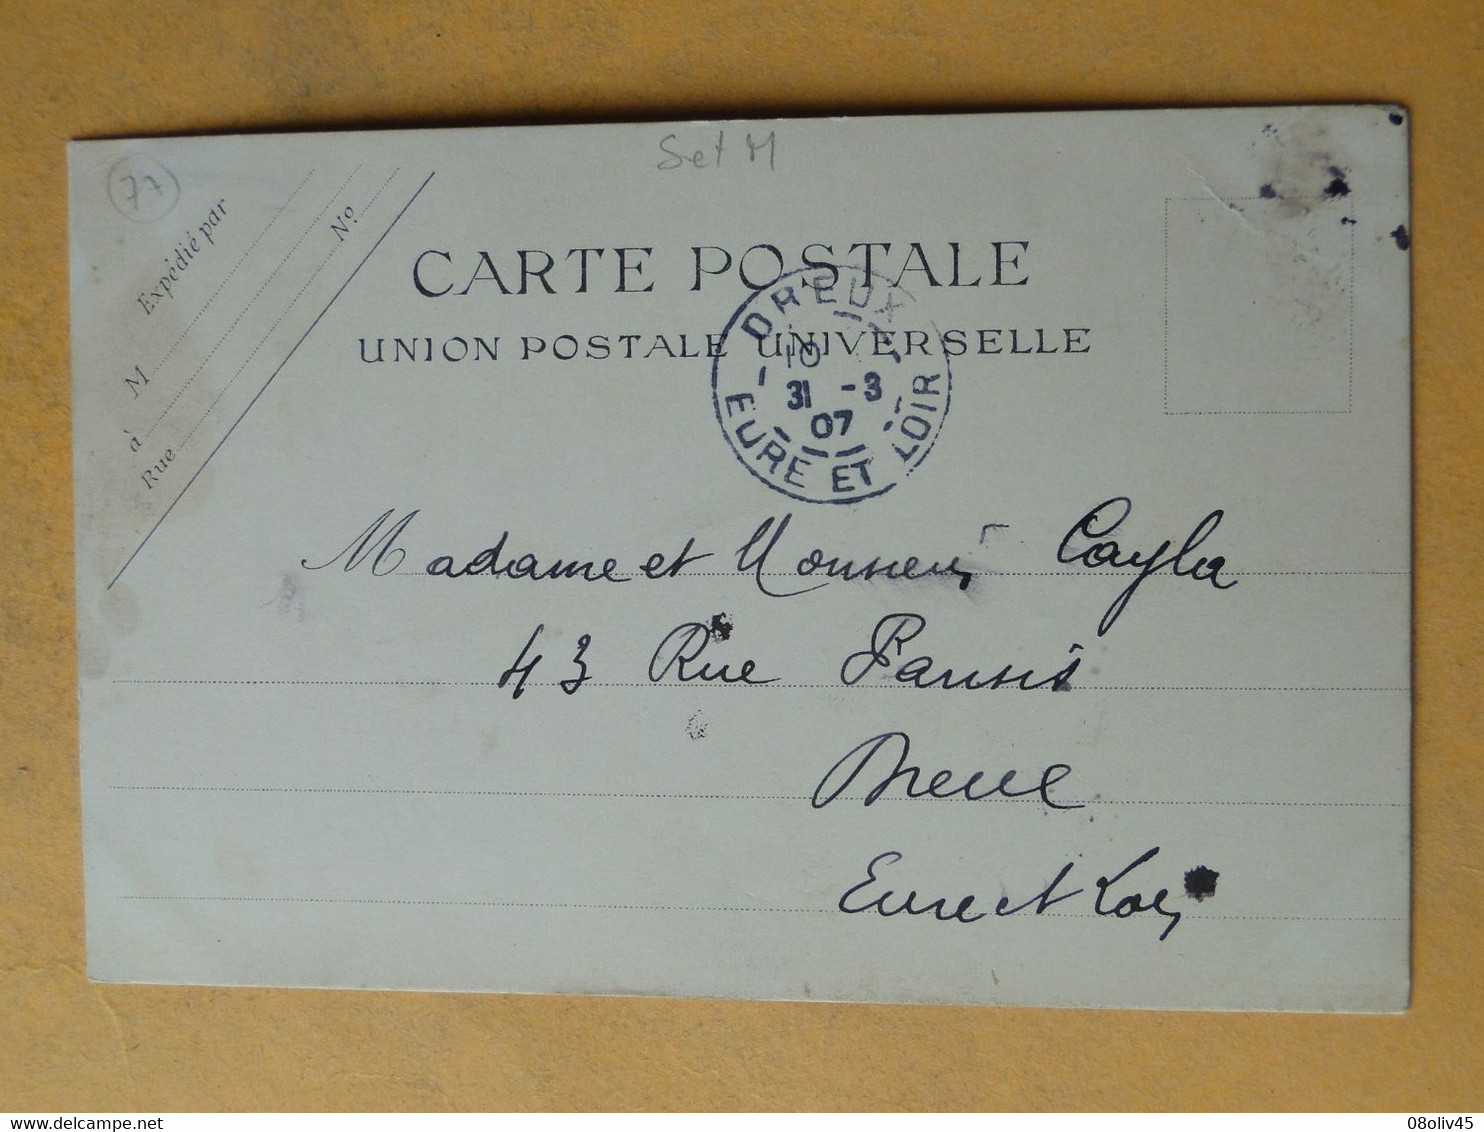 77
Set M
Expédié par
M
à
Rue
No
CARTE POSTALE
UNION POSTALE UNIVERSELLE
DREUX
10
31 -3
07
EURE ET LOIR
Madame et Monsieur Cayla
43 Rue Parisis
Dreux
Eure et Loir
delcampe.net
08oliv45